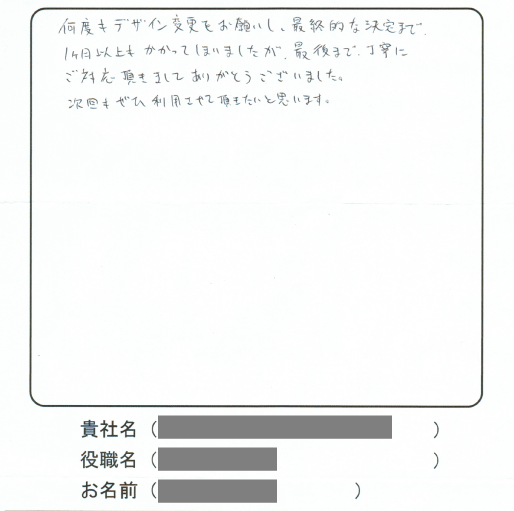 何度もデザイン変更をお願いし、最終的な決定まで、
1ヶ月以上もかかってしまいましたが、最後まで、丁寧に
ご対応頂きましてありがとうございました。
次回もぜひ利用させて頂きたいと思います。
貴社名（　　　）
役職名（　　　）
お名前（　　　）